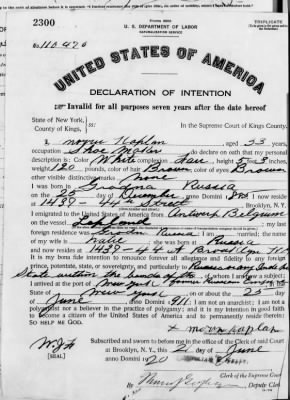 2300
U. S. DEPARTMENT OF LABOR
NATURALIZATION SERVICE
No. 110470
UNITED STATES OF AMERICA
DECLARATION OF INTENTION
Invalid for all purposes seven years after the date hereof
State of New York,
County of Kings, ss: In the Supreme Court of Kings County.
I, Kaplan, aged 33 years,
occupation Shoe Maker, do declare on oath that my personal
description is: Color White, complexion Fair, height 5 feet 3 inches,
weight 120 pounds, color of hair Brown, color of eyes Brown
other visible distinctive marks None
I was born in Grodna Russia
on the 25 day of December, anno Domini; I now reside
at 1437 - 44th Street Brooklyn, N.Y.
I emigrated to the United States of America from Antwerp Belgium
on the vessel; my last
foreign residence was Russia; I am married; the name
of my wife is; she was born in Russia
and now resides at 1437 - 44 St Brooklyn N.Y.
It is my bona fide intention to renounce forever all allegiance and fidelity to any foreign
prince, potentate, state, or sovereignty, and particularly to
of whom I am now a subject;
I arrived at the port of New York
State of New York on or about the 25 day
of June, anno Domini 1911; I am not an anarchist; I am not a
polygamist nor a believer in the practice of polygamy; and it is my intention in good faith
to become a citizen of the United States of America and to permanently reside therein:
SO HELP ME GOD.
kaplan
Subscribed and sworn to before me in the office of the Clerk of said Court
[SEAL] at Brooklyn, N. Y., this 2 day of June
anno Domini 20
Clerk of the Supreme Court
By, Deputy Clerk